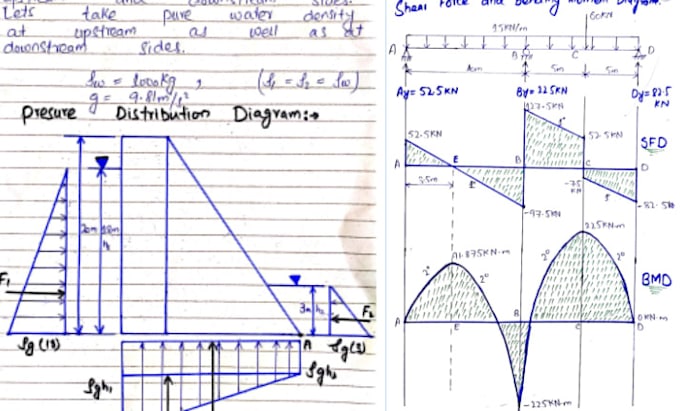 Lets take pure water density
at upstream as well as at
downstream sides.
ρw = 1000kg , (ρ1 = ρ2 = ρw)
g = 9.81m/s²
Presure Distribution Diagram:→
20m
18m
h1
F1
3m
h2
F2
ρg(18)
A
ρg(3)
ρgh1
ρgh2
Shear Force and Bending Moment Diagram
60KN
15KN/m
A
B
C
D
5m
5m
Ay= 52.5KN
Dy= 82.5
KN
127.5KN
52.5KN
52.5KN
SFD
A
E
B
C
D
3.5m
-75
KN
-97.5KN
-82.5KN
225KN.m
71.875KN.m
2°
2°
2°
2°
BMD
A
E
B
C
D
0KN.m
-225KN.m